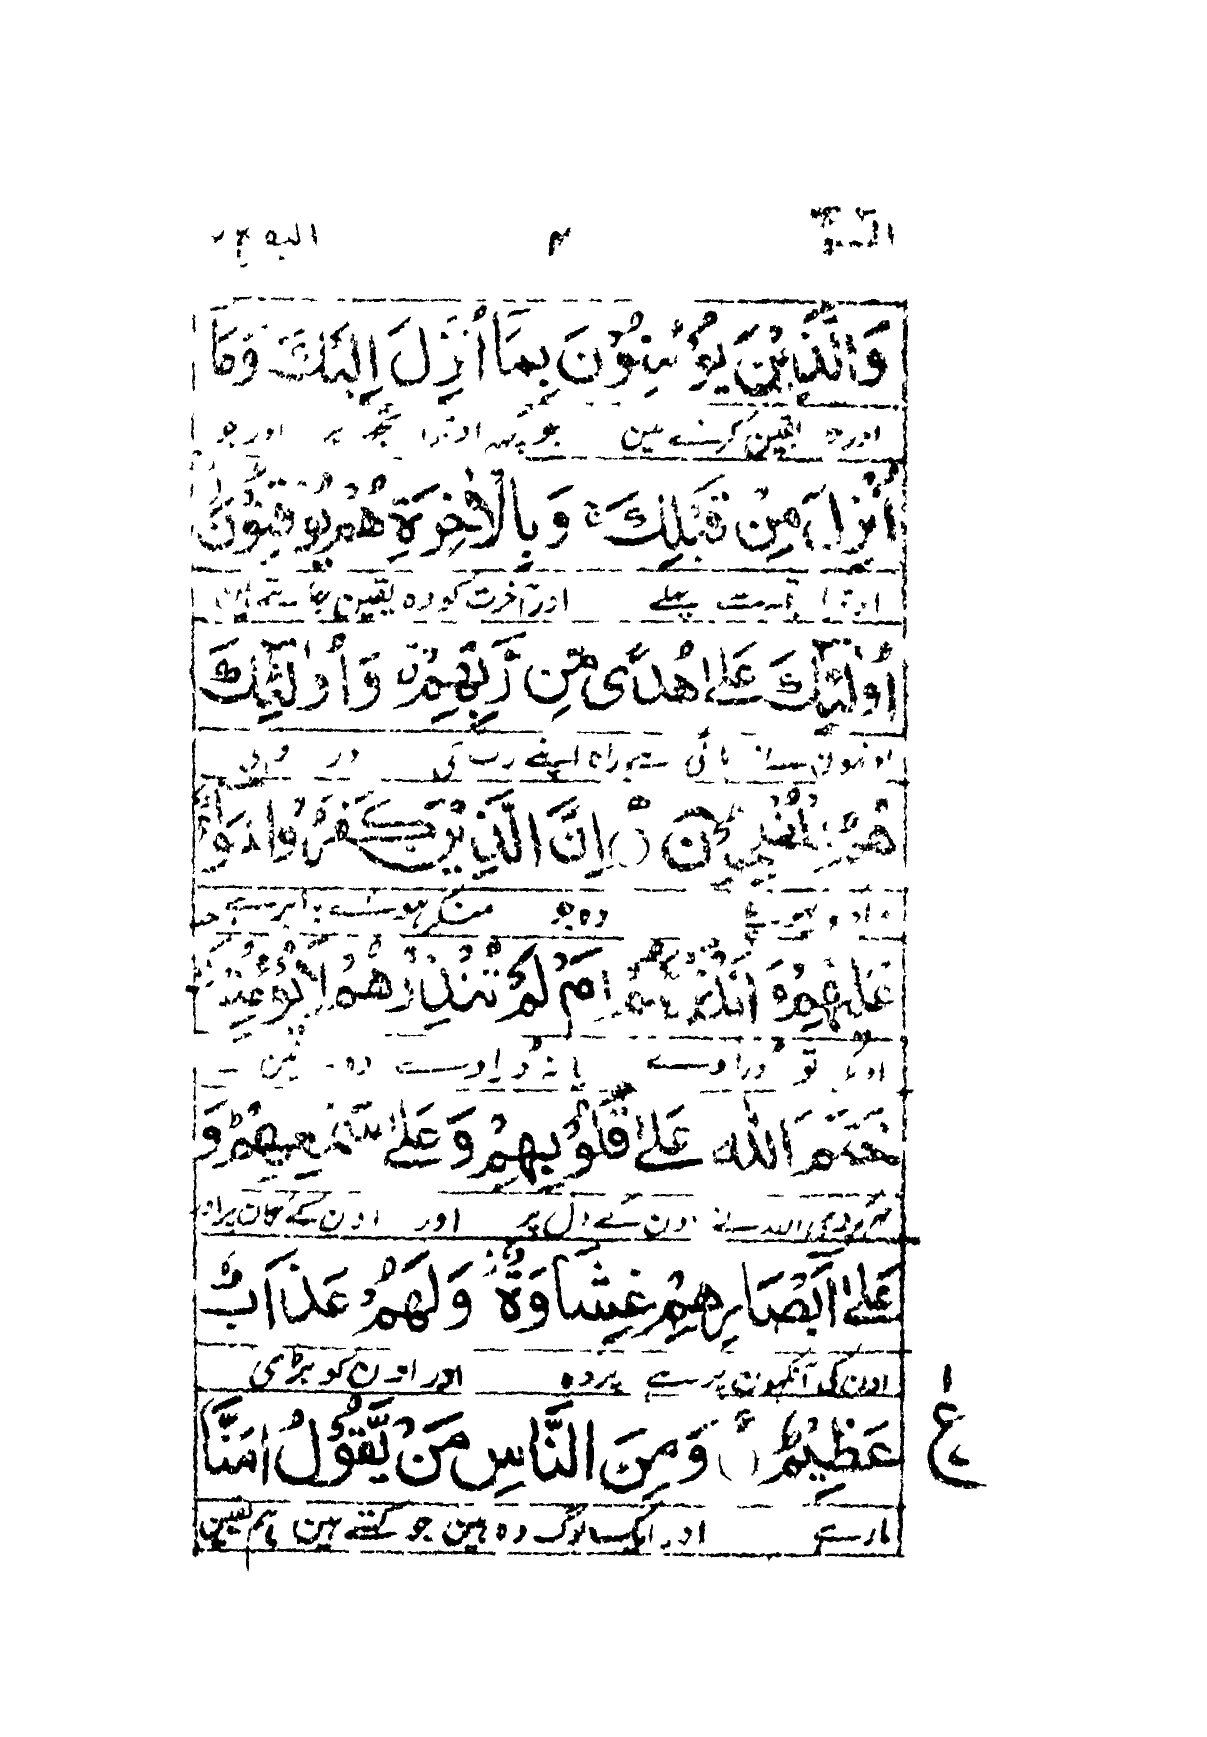 الٓمّٓ ۴ البقرة ۲
وَالَّذِيْنَ يُؤْمِنُوْنَ بِمَا أُنْزِلَ إِلَيْكَ وَمَا
اور وہ یقین کرتے ہین جو کچہہ اوترا تجھہ پر اور جو
أُنْزِلَ مِنْ قَبْلِكَ ۚ وَبِالْاٰخِرَةِ هُمْ يُوْقِنُوْنَ
اوترا پہلے اور آخرت کو وہ یقین جانتے ہین
أُولٰٓئِكَ عَلٰى هُدًى مِّنْ رَّبِّهِمْ ۤ وَأُولٰٓئِكَ
اونہون نے پائی ہے راہ اپنے رب کی اور وہی
هُمُ الْمُفْلِحُوْنَ ۝ إِنَّ الَّذِيْنَ كَفَرُوْا سَوَآءٌ
مراد کو پہونچے وہ جو منکر ہوئے برابر ہے
عَلَيْهِمْ ءَأَنْذَرْتَهُمْ اَمْ لَمْ تُنْذِرْهُمْ لَا يُؤْمِنُوْنَ
اونکو تو ڈراوے یا نہ ڈراوے وہ
خَتَمَ اللّٰهُ عَلٰى قُلُوْبِهِمْ وَعَلٰى سَمْعِهِمْ ؕ وَ
مہر کردی اللہ نے اون کے دل پر اور اون کے کان پر اور
عَلٰٓى اَبْصَارِهِمْ غِشَاوَةٌ ؗ وَلَهُمْ عَذَابٌ
اون کی آنکہون پر ہے پردہ اور اون کو بڑی
عَظِيْمٌ ۝ وَمِنَ النَّاسِ مَنْ يَّقُوْلُ اٰمَنَّا ع ۱
مار ہے اور ایک لوگ وہ ہین جو کہتے ہین ہم یقین